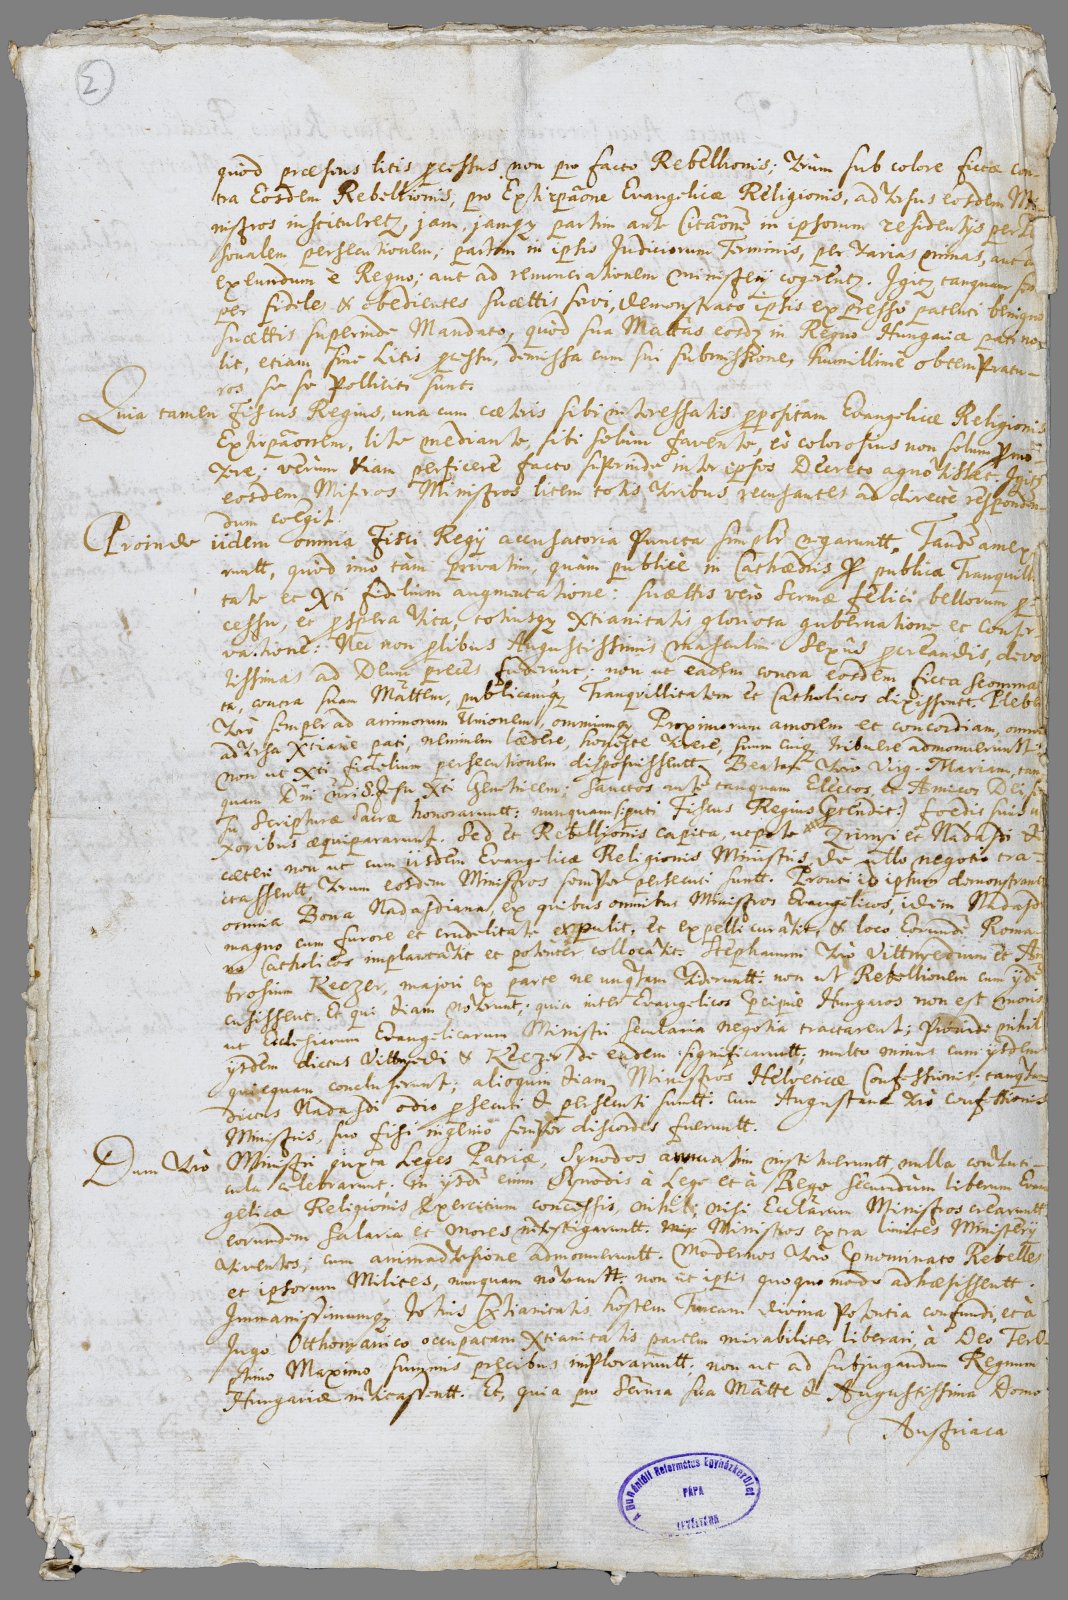 2
quod præsens litis pcessus non pro facto Rebellionis; verùm sub colore fictæ con-
tra Eosdem Rebellionis, pro Extirpãone Evangelicæ Religionis, adversus eosdem Mi-
nistros institueretz, jam, jamqz partim ante Citãõnẽ in ipsorum residentijs per
sonalem persecutionem; partim in ipsis Judiciorum Terminis, per varias minas, aut
exeundum è Regno, aut ad renunciationem Ministerij cogerentz. Igitz tanquam
per fideles & obedientes suættis servi, demonstrato ipsis expresso patenti benigno
suættis superinde Mandato, quod sua Mattas eosdẽ in Regno Hungariæ pati nol-
lit, etiam sine Litis pcessu, demissa cum sui submissione, humillimè obtempratu-
ros se se polliciti sunt.
Quia tamen Fiscus Regius, una cum cæteris sibi interessatis ppositam Evangelicæ Religionis
Extirpãonem, lite mediante, sibi solùm favente, eò colorosius non solum pmo-
vere; verùm etiam perficere facto superinde inter ipsos Decreto agnovisset: Igitz
eosdem Miseros Ministros litem totis viribus recusantes ad directè responden-
dum coegit.
Proinde iidem omnia Fisci Regij accusatoria Puncta simplr negaruntt,
runtt, quòd imò tàm privatim, quàm publicè in Cathædris p publica Tranquilli-
tate et Xti fidelium augmentatione: suættis verò Sermæ felici bellorum p-
cessu, et pspera vita, totiusqz Xtianitatis gloriosa gubernatione et conser-
vatione: Nec non plibus Augustissimis masculini sexûs pcreandis, devo-
tissimas ad Deum preces fuderunt, non ut eadem contra eosdem ficta scomma-
ta, contra suam Mattem, publicamqz Tranquillitatem et Catholicos dixissent. Plebem
verò semper ad animorum Unionem, omniumqz Proximorum amorem et concordiam, omnia
adversa Xtianè pati, neminem lædere, honestè vivere, suum cuiqz tribuere admonueruntt:
non ut Xti fidelium persecutionem disposuissentt. Beatam verò Virg. Mariam, tan-
quam Dñi nri Jesu Xti Genitricem: Sanctos autẽ tanquam Electos, et Amicos Dei,
Scripturæ Sacræ honoraruntt: nunquam (:puti Fiscus Regius ptendit:) foedis suis u-
xoribus æquipararunt. Sed et Rebellionis capita, utpote Zrinyi et Nadasdi &
cæteri non ut cum iisdem Evangelicæ Religionis Ministris de ullo negotio tra-
ctassentt, verum eosdem Ministros semper persecuti suntt. Prouti id ipsum demonstrant
omnia Bona Nadasdiana, ex quibus omnibus Ministros Evangelicos, idem Nadasdi
magno cum furore et crudelitate expulit, et expelli curavit, & loco Eorundẽ Roma-
no Catholicos implantavit et potenter collocavit. Stephanum verò Vittnyedium et Am-
brosium Keczer, majori ex parte ne unqtam viderunt: non ut Rebellionem cum ijsdẽ
cusissent. Et qui etiam noverunt; quia inter Evangelicos pcipuè Hungaros non est moris
ut Ecclesiarum Evangelicarum Ministri secularia negotia tractarent; Proinde nihil
ijsdem dictus Vittnyedi & Keczer de eadem significaruntt: multo minus cum ijsdem
quicquam concluserunt; alioquin etiam Ministros Helveticæ Confessionis, tanqtam
dictus Nadasdi odio psecuti & persecuti suntt: cum Augustanæ verò confessionis
Ministris, suo fisi ingenio semper discordes fueruntt.
Dum verò Ministri juxta Leges Patriæ, Synodos annuatim instituerunt, nulla conventi-
cula celebrarunt; In ijsdẽ enim Synodis à Lege et à Rege secundùm liberum Evan-
gelicæ Religionis Exercitium concessis, nihil, nisi Ecclarum Ministros crearuntt
eorundem salaria et mores investigaruntt. Ministros extra limites Ministerij
viventes, cum animadversione admonueruntt. Modernos verò pnominato Rebelles
et ipsorum Milites, nunquam noveruntt: non ut ipsis quoquo modo adhæsissentt.
Immanissimumqz totius Xtianitatis hostem Turcam divina Potentia confundi, et à
Jugo Otthomanico occupatam Xtianitatis partem mirabiliter liberari, à Deo Ter Opti-
mo Maximo summis precibus imploraruntt; non ut ad subjugandum Regnum
Hungariæ invitassentt. Et, quia pro Serma sua Matte & Augustissima Domo
Austriaca
A Dunántúli Református Egyházkerület
PÁPA
LEVÉLTÁRA